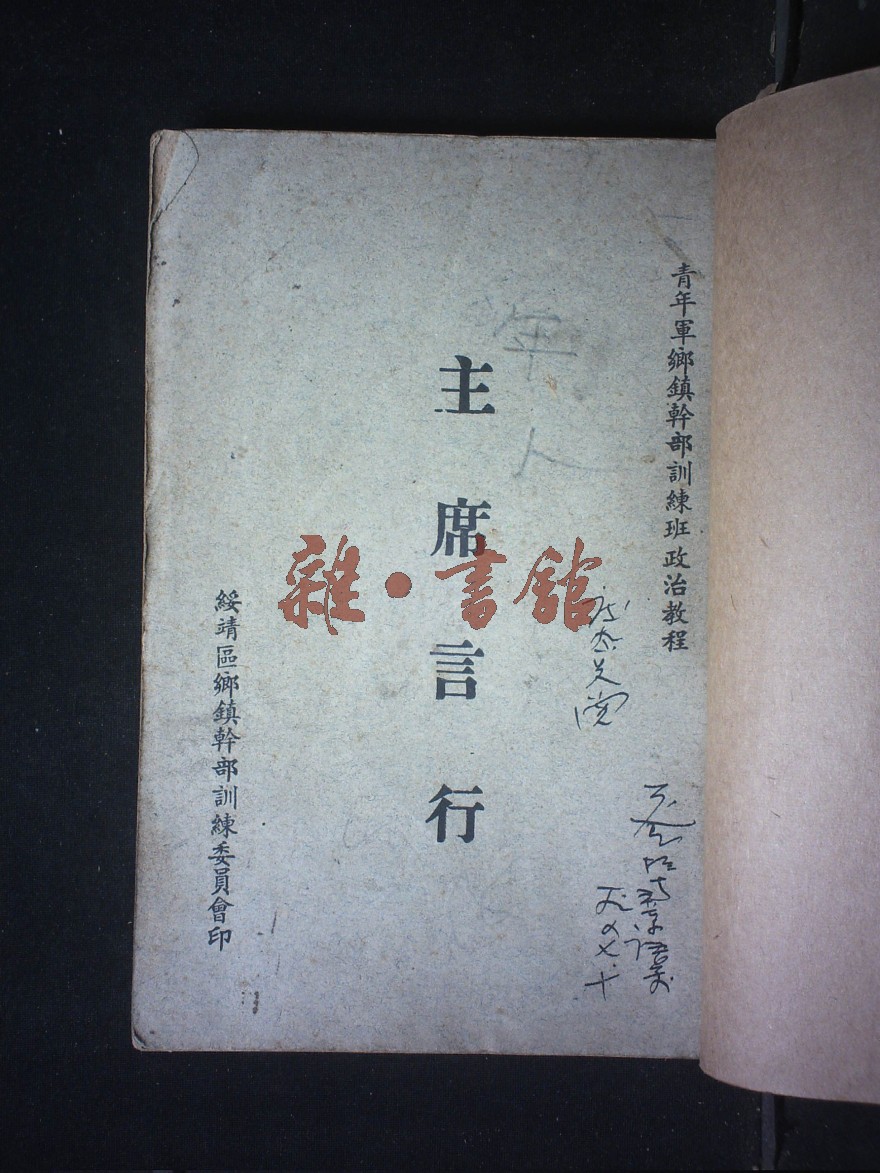 青年軍鄉鎮幹部訓練班政治教程
主席言行
綏靖區鄉鎮幹部訓練委員會印
雜·書舘
軍人